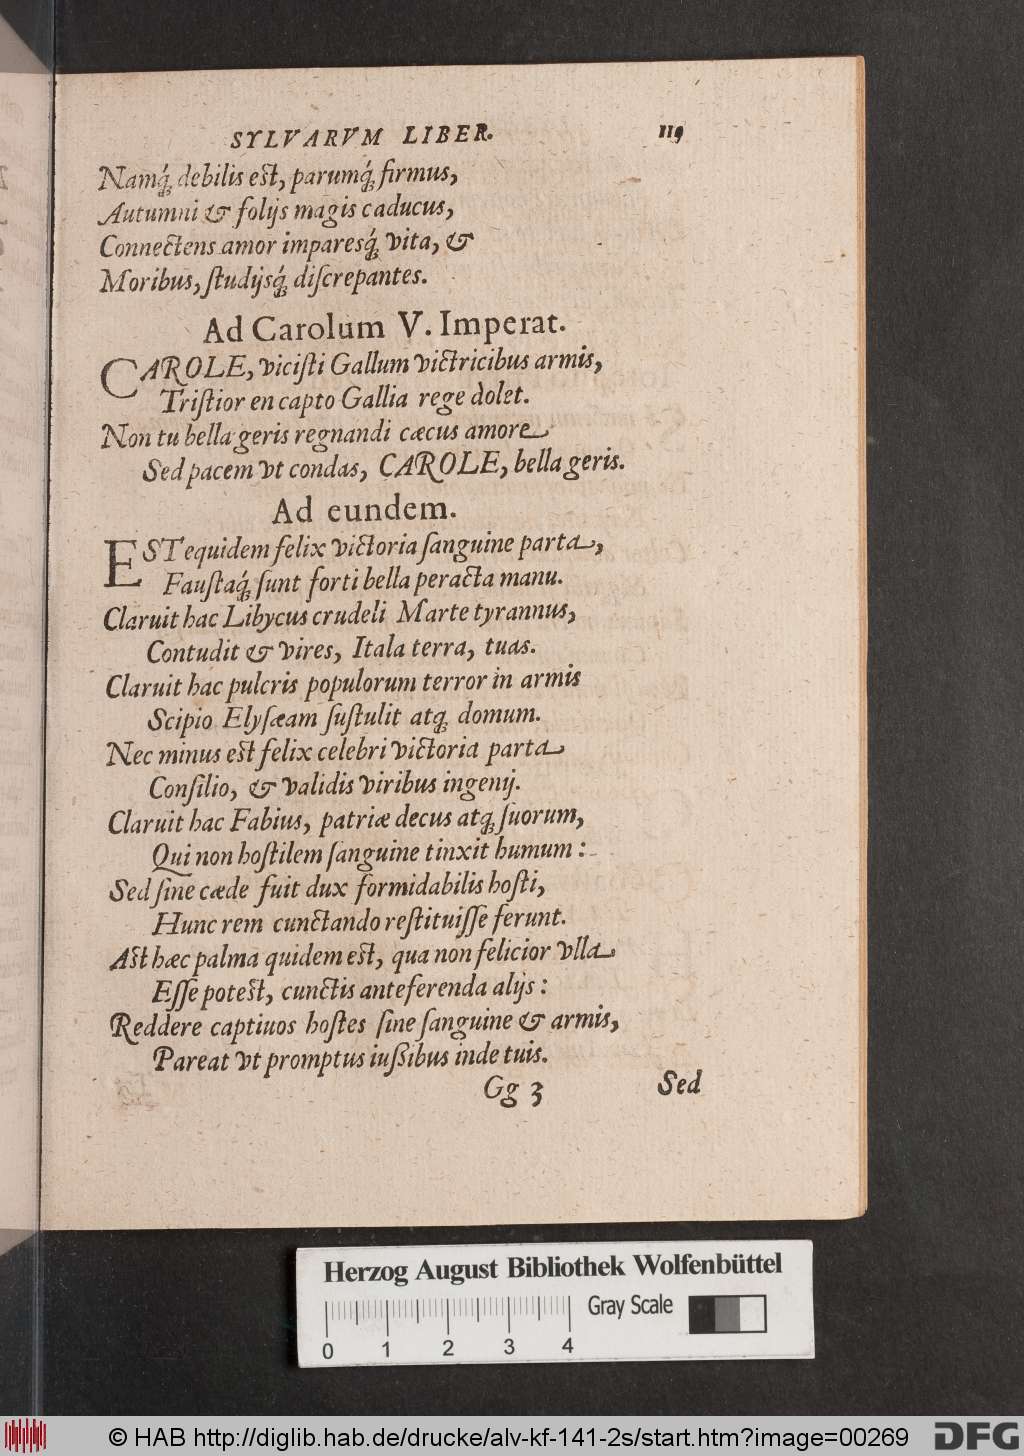 SYLVARVM LIBER. 119
Namq́; debilis est, parumq́; firmus,
Autumni & folijs magis caducus,
Connectens amor imparesq́; vita, &
Moribus, ſtudijsq́; diſcrepantes.
Ad Carolum V. Imperat.
CAROLE, viciſti Gallum victricibus armis,
Triſtior en capto Gallia rege dolet.
Non tu bella geris regnandi cæcus amore
Sed pacem vt condas, CAROLE, bella geris.
Ad eundem.
EST equidem felix victoria ſanguine parta,
Fauſtaq́; ſunt forti bella peracta manu.
Claruit hac Libycus crudeli Marte tyrannus,
Contudit & vires, Itala terra, tuas.
Claruit hac pulcris populorum terror in armis
Scipio Elyſæam ſuſtulit atq; domum.
Nec minus est felix celebri victoria parta
Conſilio, & validis viribus ingenij.
Claruit hac Fabius, patriæ decus atq; ſuorum,
Qui non hoſtilem ſanguine tinxit humum:
Sed ſine cæde fuit dux formidabilis hoſti,
Hunc rem cunctando reſtituiſſe ferunt.
Ast hæc palma quidem est, qua non felicior vlla
Eſſe potest, cunctis anteferenda alijs:
Reddere captiuos hoſtes ſine ſanguine & armis,
Pareat vt promptus iuſsibus inde tuis.
Gg 3 Sed
Herzog August Bibliothek Wolfenbüttel
Gray Scale
0 1 2 3 4
© HAB http://diglib.hab.de/drucke/alv-kf-141-2s/start.htm?image=00269
DFG